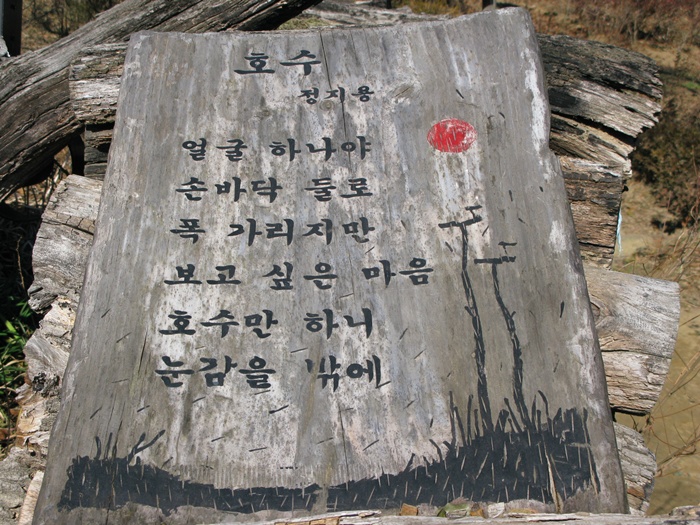 호수
정지용
얼굴 하나야
손바닥 둘로
폭 가리지만
보고 싶은 마음
호수만 하니
눈감을 밖에